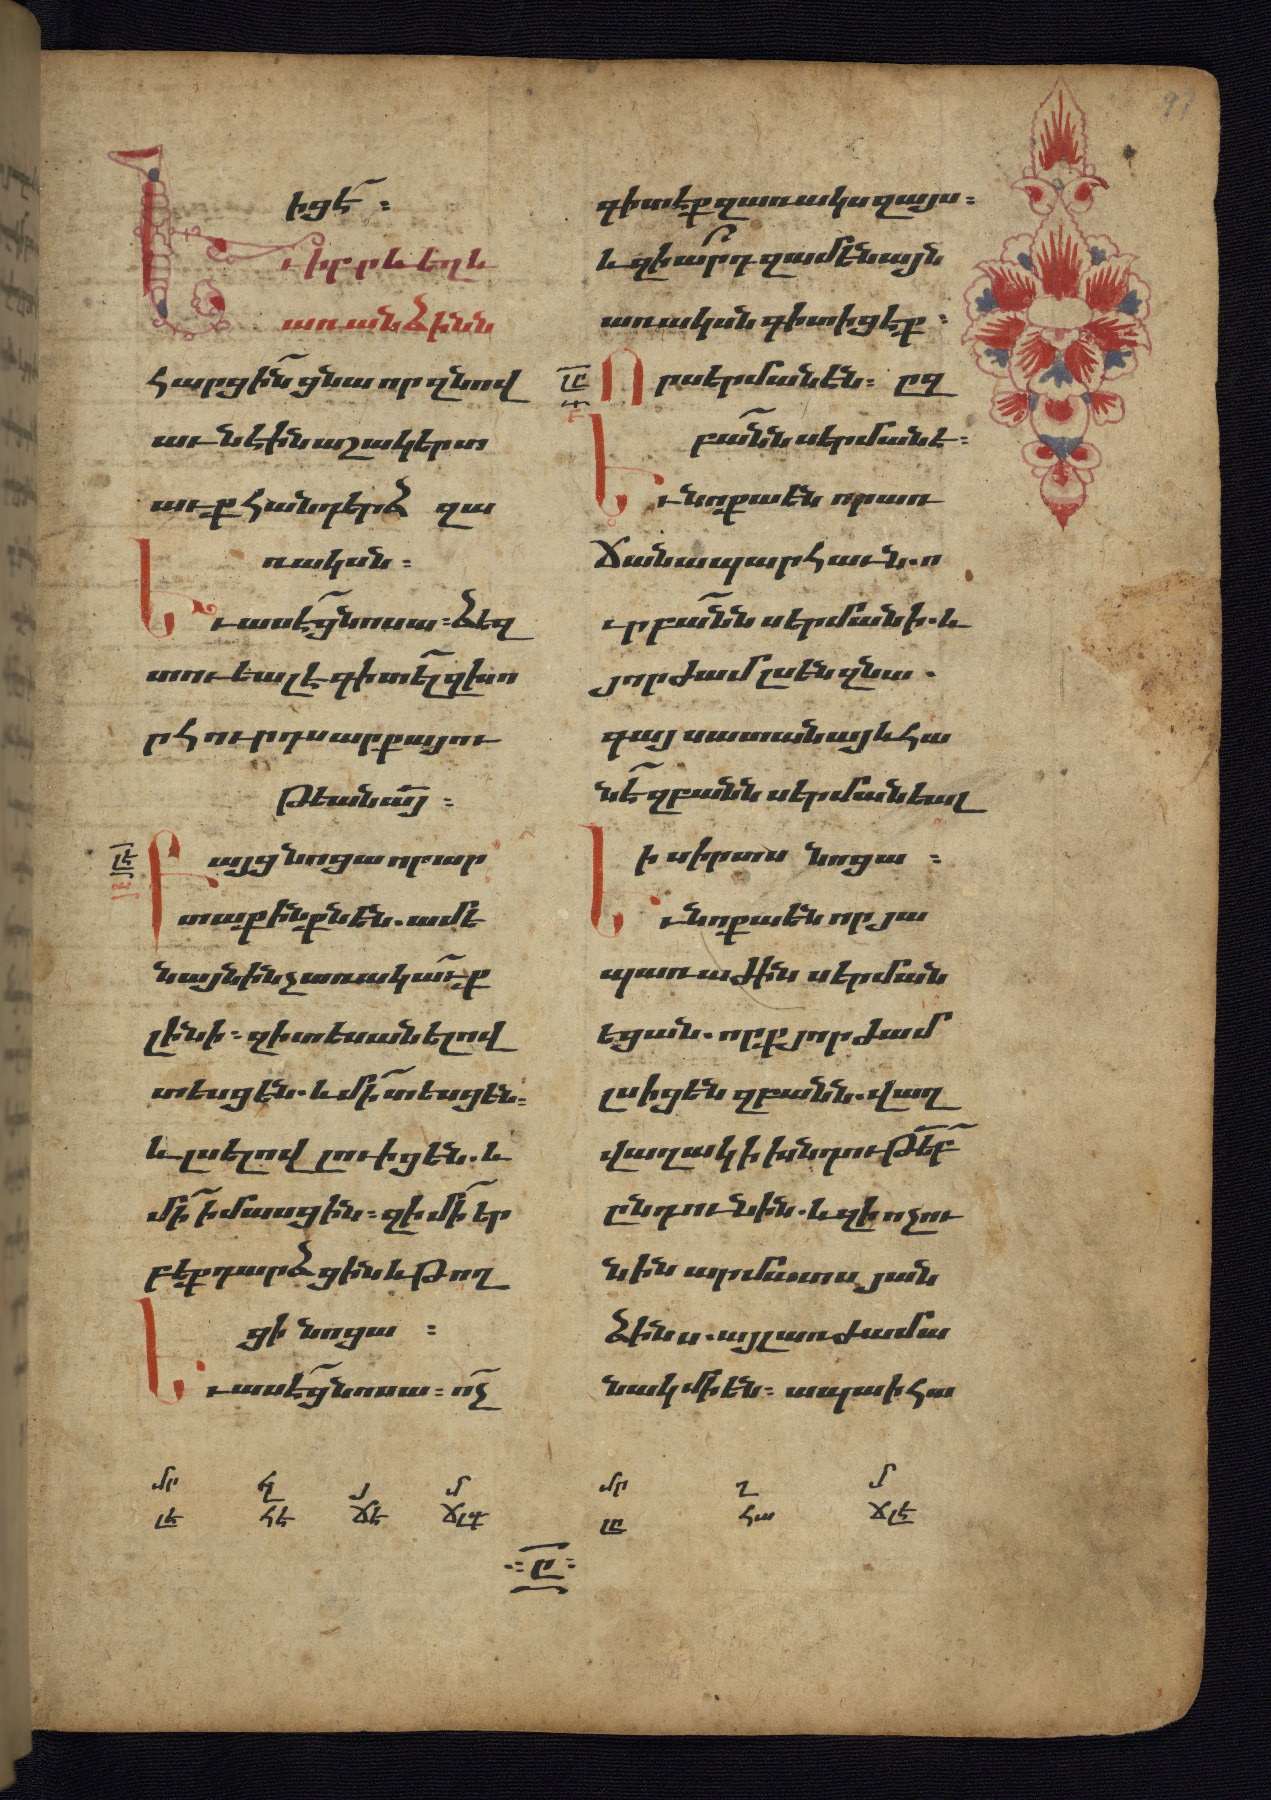 իցէ ։
Եւ իբրև եղև
առանձինն
հարցին ցնա որ զնով
աւ նէին աշակերտ
աւք հանդերձ զա
ռակսն ։
Եւ ասէ ցնոսա ։ ձեզ
տուեալ է գիտել զխո
րհուրդս արքայու
թեան այ ։
լէ
Բայց նոցա որ ար
տաքինքն են . ամե
նայն ինչ առակաւք
լինի ։ զի տեսանելով
տեսցեն . և մի տեսցեն ։
և լսելով լուիցեն . և
մի իմասցին ։ զի մի եր
բէք դարձցին և թող
ցի նոցա ։
Եւ ասէ ցնոսա ։ ոչ
գիտէք զառակս զայս ։
և զիարդ զամենայն
առակսն գիտիցէք ։
լը
Որ սերմանէն ։ ըզ
բանն սերմանէ ։
Եւ նոքա են որ առ
ճանապարհաւն . ո
ւր բանն սերմանի . և
յորժամ լսեն զնա .
գայ սատանայ և հա
նէ զբանն սերմանեալ
ի սիրտս նոցա ։
Եւ նոքա են որ յա
պառաժին սերման
եցան . որք յորժամ
լսիցեն զբանն . վաղ
վաղակի խնդութեբ
ընդունին . և զի ոչ ու
նին արմատս յան
ձինս . այլ առ ժամա
նակ մի են ։ ապա ի հա
մր ղ յ մ
լե հե ճե ճլգ
մր ղ մ
լը հա ճլէ
ը